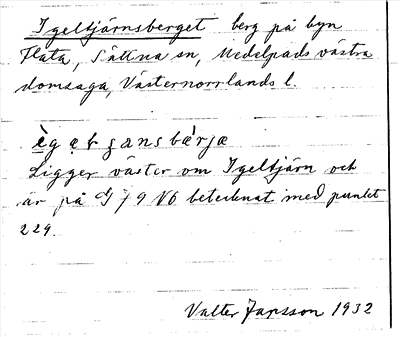 Igeltjärnsberget berg på byn
Flata, Sättna sn, Medelpads västra
domsaga, Västernorrlands l.
Ligger väster om Igeltjärn och
är på GJ 79 V6 betecknat med punkt
229.
Valter Jansson 1932